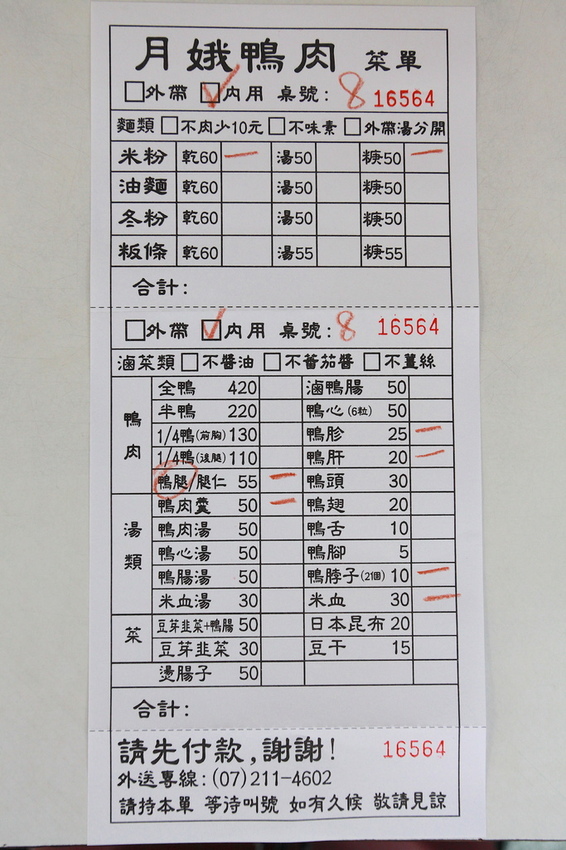 月娥鴨肉 菜單
□外帶 ☑內用 桌號: 8 16564
麵類 □不肉少10元 □不味素 □外帶湯分開
米粉 乾60 一 湯50 糖50 一
油麵 乾60 湯50 糖50
冬粉 乾60 湯50 糖50
粄條 乾60 湯55 糖55
合計:
□外帶 ☑內用 桌號: 8 16564
滷菜類 □不醬油 □不蕃茄醬 □不薑絲
鴨肉
全鴨 420 滷鴨腸 50
半鴨 220 鴨心(6粒) 50
1/4鴨(前胸) 130 鴨胗 25 一
1/4鴨(後腿) 110 鴨肝 20 一
鴨腿/腿仁 55 一 鴨頭 30
湯類
鴨肉羹 50 一 鴨翅 20
鴨肉湯 50 鴨舌 10
鴨心湯 50 鴨腳 5
鴨腸湯 50 鴨脖子(2個) 10 一
米血湯 30 米血 30 一
菜
豆芽韭菜+鴨腸 50 日本昆布 20
豆芽韭菜 30 豆干 15
燙腸子 50
合計:
請先付款,謝謝! 16564
外送專線:(07)211-4602
請持本單 等待叫號 如有久候 敬請見諒